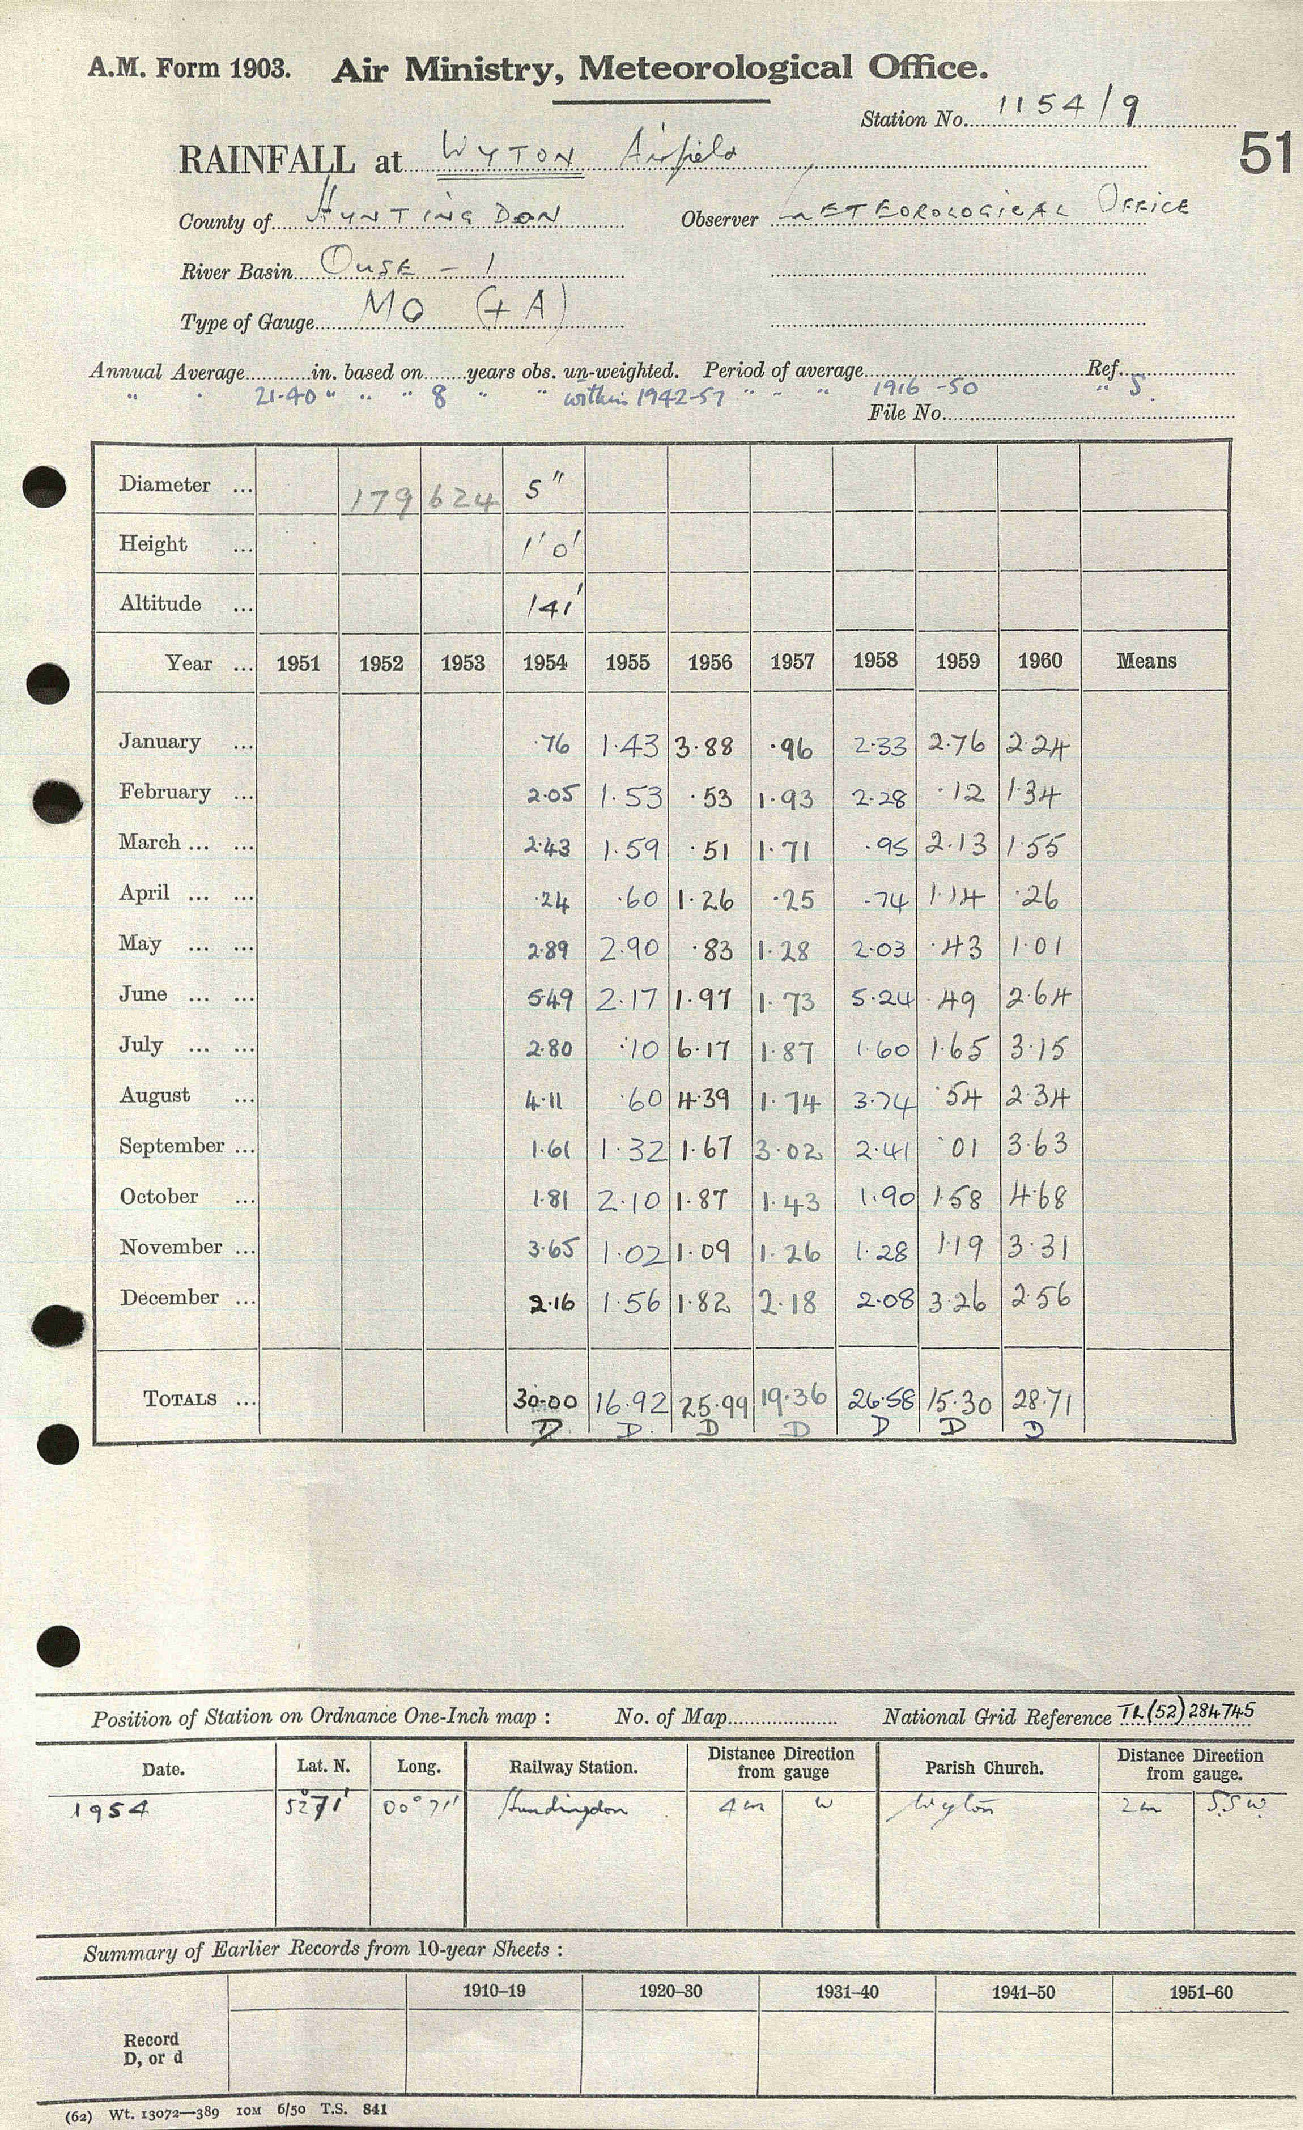 A.M. Form 1903. Air Ministry, Meteorological Office.
Station No. 1154/9
51
RAINFALL at WYTON Airfield
County of HUNTINGDON Observer METEOROLOGICAL OFFICE
River Basin OUSE - 1
Type of Gauge MO (+A)
Annual Average in. based on years obs. un-weighted. Period of average Ref.
" " 21.40 " " " 8 " " within 1942-57 " " " 1916-50 " S.
File No.
Diameter ... 179624 5"
Height ... 1'0'
Altitude ... 141'
Year ... 1951 1952 1953 1954 1955 1956 1957 1958 1959 1960 Means
January ... .76 1.43 3.88 .96 2.33 2.76 2.24
February ... 2.05 1.53 .53 1.93 2.28 .12 1.34
March ... ... 2.43 1.59 .51 1.71 .95 2.13 1.55
April ... ... .24 .60 1.26 .25 .74 1.14 .26
May ... ... 2.89 2.90 .83 1.28 2.03 .43 1.01
June ... ... 5.49 2.17 1.97 1.73 5.24 .49 2.64
July ... ... 2.80 .10 6.17 1.87 1.60 1.65 3.15
August ... 4.11 .60 4.39 1.74 3.74 .54 2.34
September ... 1.61 1.32 1.67 3.02 2.41 .01 3.63
October ... 1.81 2.10 1.87 1.43 1.90 1.58 4.68
November ... 3.65 1.02 1.09 1.26 1.28 1.19 3.31
December ... 2.16 1.56 1.82 2.18 2.08 3.26 2.56
TOTALS ... 30.00 16.92 25.99 19.36 26.58 15.30 28.71
D D D D D D D
Position of Station on Ordnance One-Inch map : No. of Map National Grid Reference TL(52)284745
Date. Lat. N. Long. Railway Station. Distance Direction from gauge Parish Church. Distance Direction from gauge.
1954 52°71' 00°71' Huntingdon 4m W Wyton 2m S.S.W.
Summary of Earlier Records from 10-year Sheets :
1910–19 1920–30 1931–40 1941–50 1951–60
Record
D, or d
(62) Wt. 13072—389 10M 6/50 T.S. 841